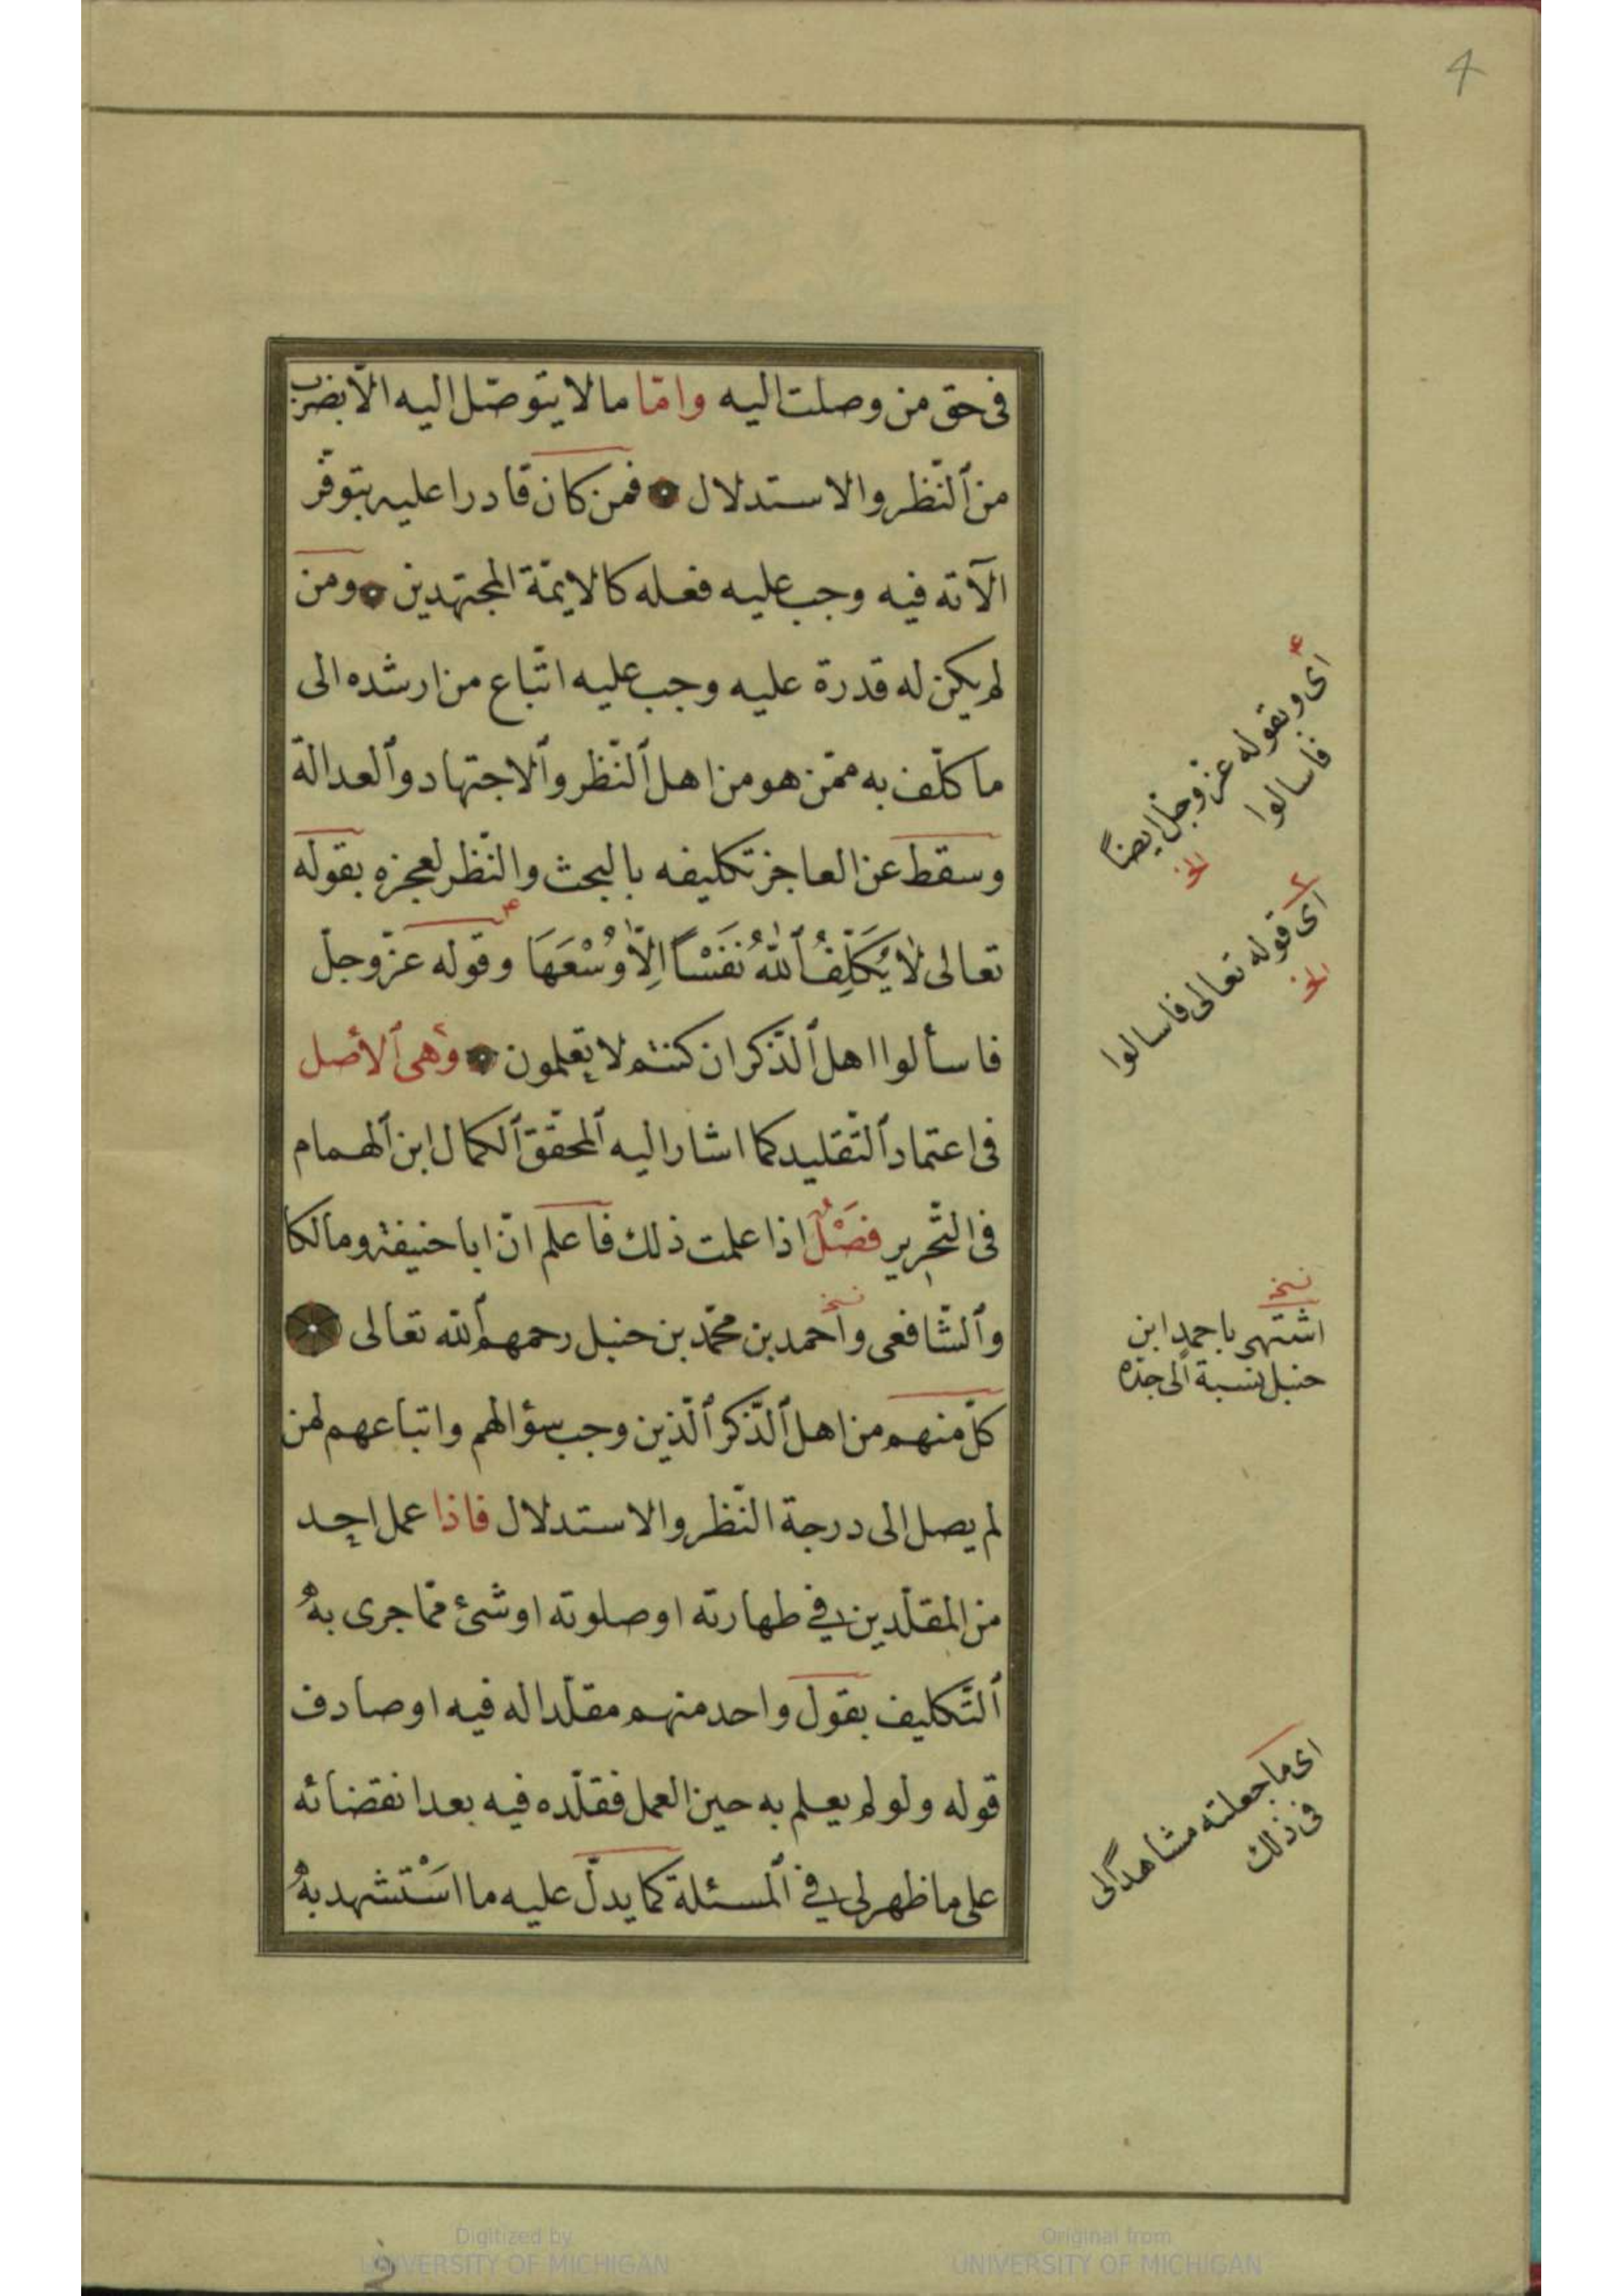 4
فى حق من وصلت اليه وامّا ما لا يتوصّل اليه الّا بضرب
من ٱلنّظر والاستدلال فمن كان قادرا عليه بتوفّر
الآته فيه وجب عليه فعله كالايمّة المجتهدين ومن
لم يكن له قدرة عليه وجب عليه اتّباع من ارشده الى
ما كلّف به ممّن هو من اهل ٱلنّظر وٱلاجتهاد وٱلعدالة
وسقط عن العاجز تكليفه بالبحث والنّظر لعجزه بقوله
تعالى لَا يُكَلِّفُ ٱللّٰهُ نَفْسًا اِلَّا وُسْعَهَا وقوله عزّ وجلّ
فاسألوا اهل ٱلذّكر ان كنتم لا تعلمون وهى ٱلأصل
فى اعتماد ٱلتّقليد كما اشار اليه ٱلمحقّق ٱلكمال ابن ٱلهمام
فى التّحرير فَصْلٌ اذا علمت ذلك فاعلم انّ ابا حنيفة ومالكا
وٱلشّافعى وأحمد بن محمّد بن حنبل رحمهم ٱللّه تعالى
كلّ منهم من اهل ٱلذّكر ٱلّذين وجب سؤالهم واتباعهم لمن
لم يصل الى درجة النّظر والاستدلال فاذا عمل احد
من المقلّدين فى طهارته او صلوته او شئ ممّا جرى به
ٱلتّكليف بقول واحد منهم مقلّدا له فيه او صادف
قوله ولو لم يعلم به حين العمل فقلّده فيه بعد انقضائه
على ما ظهر لى فى ٱلمسئلة كما يدلّ عليه ما اسْتشهد به
اى وبقوله عزّ وجلّ ايضاً
فاسالوا
الخ
اى قوله تعالى فاسالوا
الخ
نسخ
اشتهر باحمد ابن
حنبل نسبة الى جدّه
اى ما جعلته مشاهداً لى
فى ذلك
Digitized by
UNIVERSITY OF MICHIGAN
Original from
UNIVERSITY OF MICHIGAN